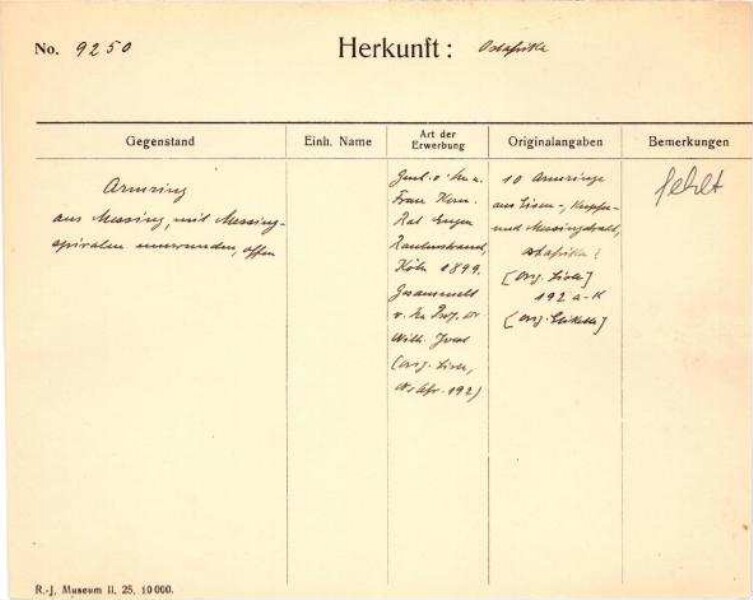 No. 9250
Herkunft: Ostafrika
Gegenstand
Einh. Name
Art der
Erwerbung
Originalangaben
Bemerkungen
Armring
aus Messing, mit Messing-
spiralen umwunden, offen
Frau Kom.
Rat Eugen
Rautenstrauch,
Köln 1899.
Gesammelt
v. Prof. Dr
Wilh. Joest
(orig. Liste,
192)
10 Armringe
aus Eisen-, Kupfer-
und Messingdraht,
Ostafrika
[orig. Liste]
192 a-K
[orig. Etikette]
fehlt
R.-J. Museum II. 25. 10000.